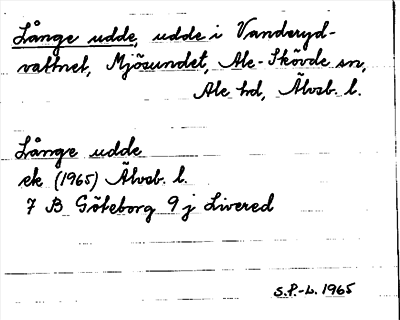 Långe udde, udde i Vanderyd-
vattnet, Mjösundet, Ale-Skövde sn,
Ale hd, Älvsb. l.
Långe udde
ek (1965) Älvsb. l.
7 B Göteborg 9 j Livered
S.P.-L. 1965